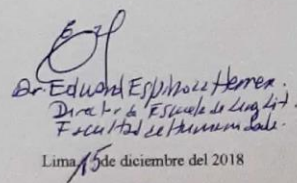 Dr. Eduard Espinoza Herrera.
Director de Escuela de Ling. Lit.
Facultad de Humanidades.
Lima, 15 de diciembre del 2018